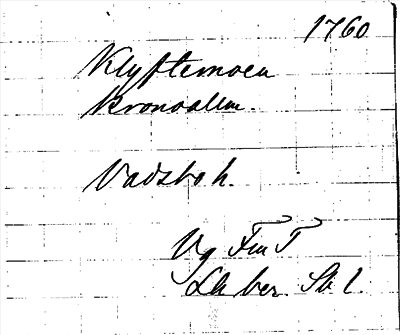 1760
Klyftemoen
Kronoallm.
Vadsbo h.
Vg Fm T
La ber. Sv l.